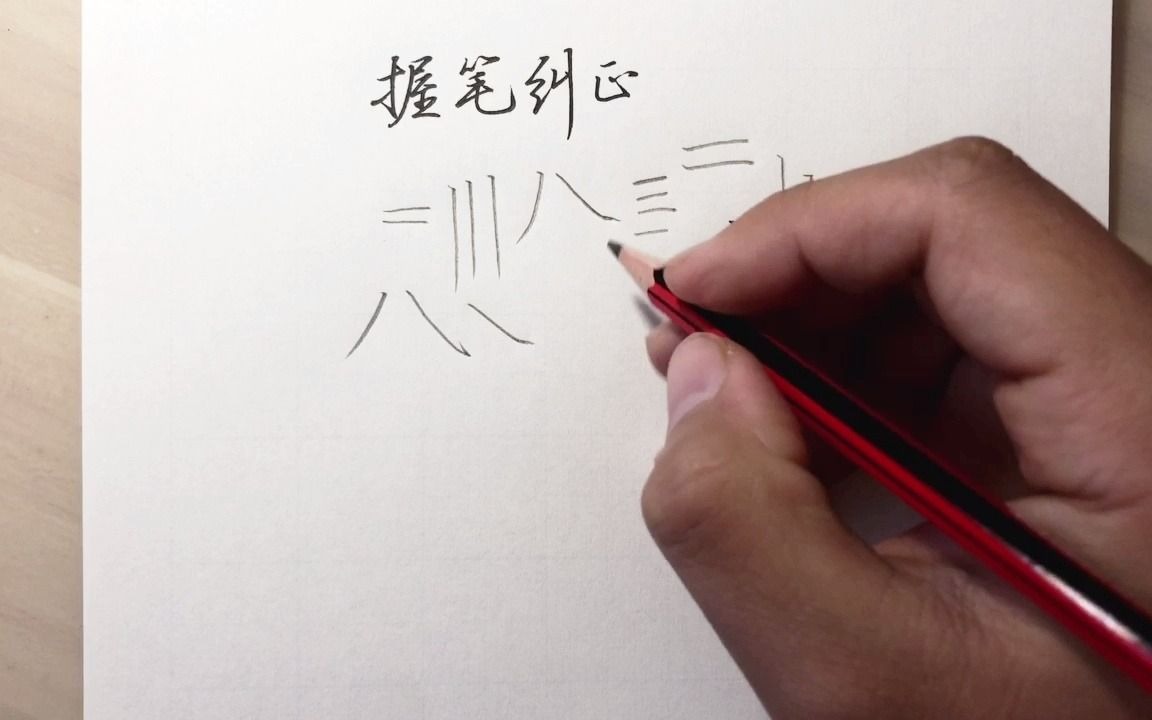 握笔纠正